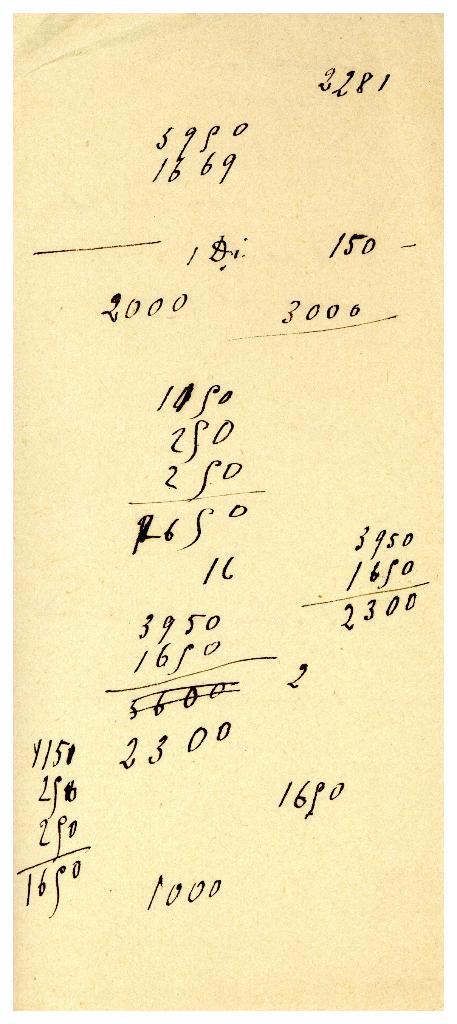 2281
5950
1669
1 Di. 150 –
2000 3000
1150
250
250
1650
16
3950
1650
2300
3950
1650
5600
2
2300
1150
250
250
1650
1650
1000